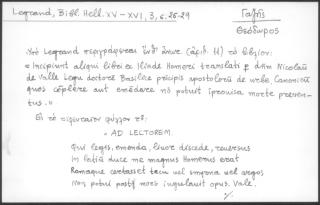 Legrand, Bibl. Hell. XV - XVI, 3, σ. 26-29
Γαζῆς
Θεόδωρος
Ὑπὸ Legrand περιγράφεται ὑπ' ἀριθ. το βιβλίον:
« Incipiunt aliqui libri ex Iliade Homeri translati p dnm Nicolaū
de Valle Legū doctorē Basilice prīcipis apostolorū de urbe Canonicū
quos cōplere aut emēdare nō potuit īprouisa morte preven-
tus. »
Εἰ τὸ τελευταῖον φύλλον τ.:
« AD LECTOREM
Qui legis, emenda, livor discede, reversus
In latiū duce me magnus Homerus erat
Romaque certasset tecum vel smyrna vel argos
Non potui postq̄ mors iugulavit opus. Vale.